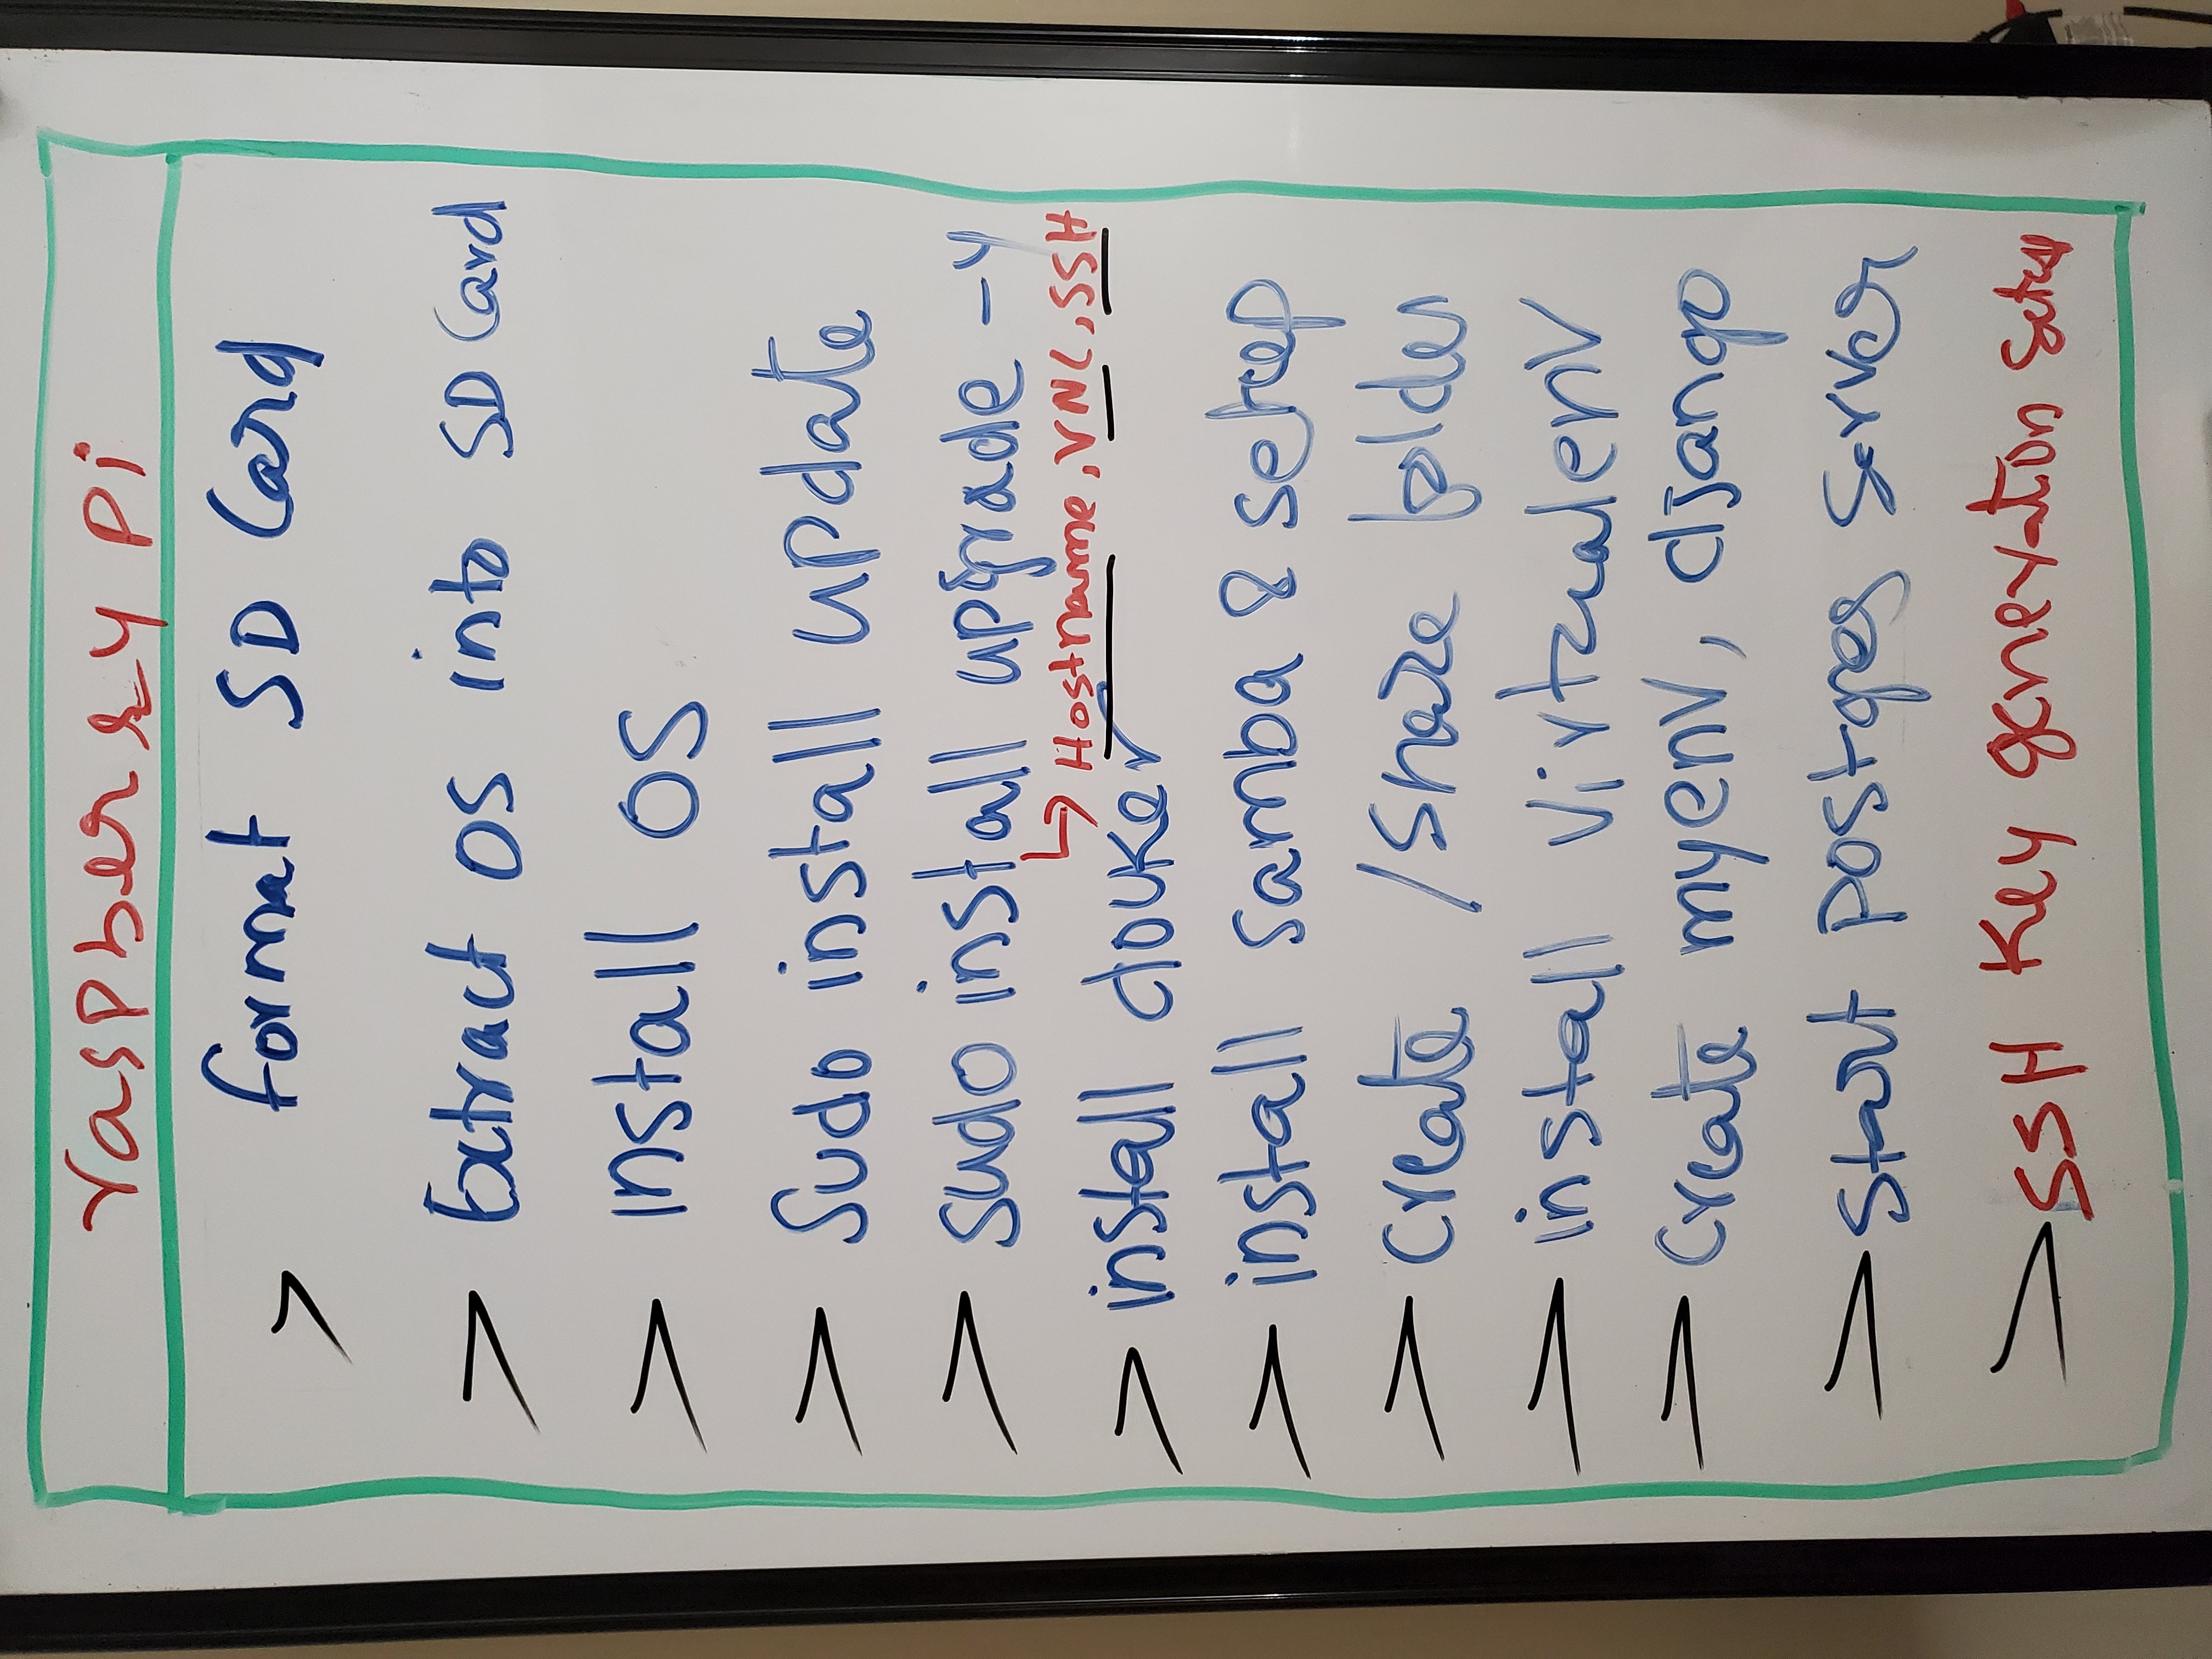 raspberry pi
> format SD Card
> Extract OS into SD Card
> install OS
> Sudo install update
> sudo install upgrade -y
↳ Hostname, VNC, SSH
> install docker
> install samba & setup
> create /share folder
> install virtualenv
> create myenv, django
> start postgres server
> SSH Key generation setup